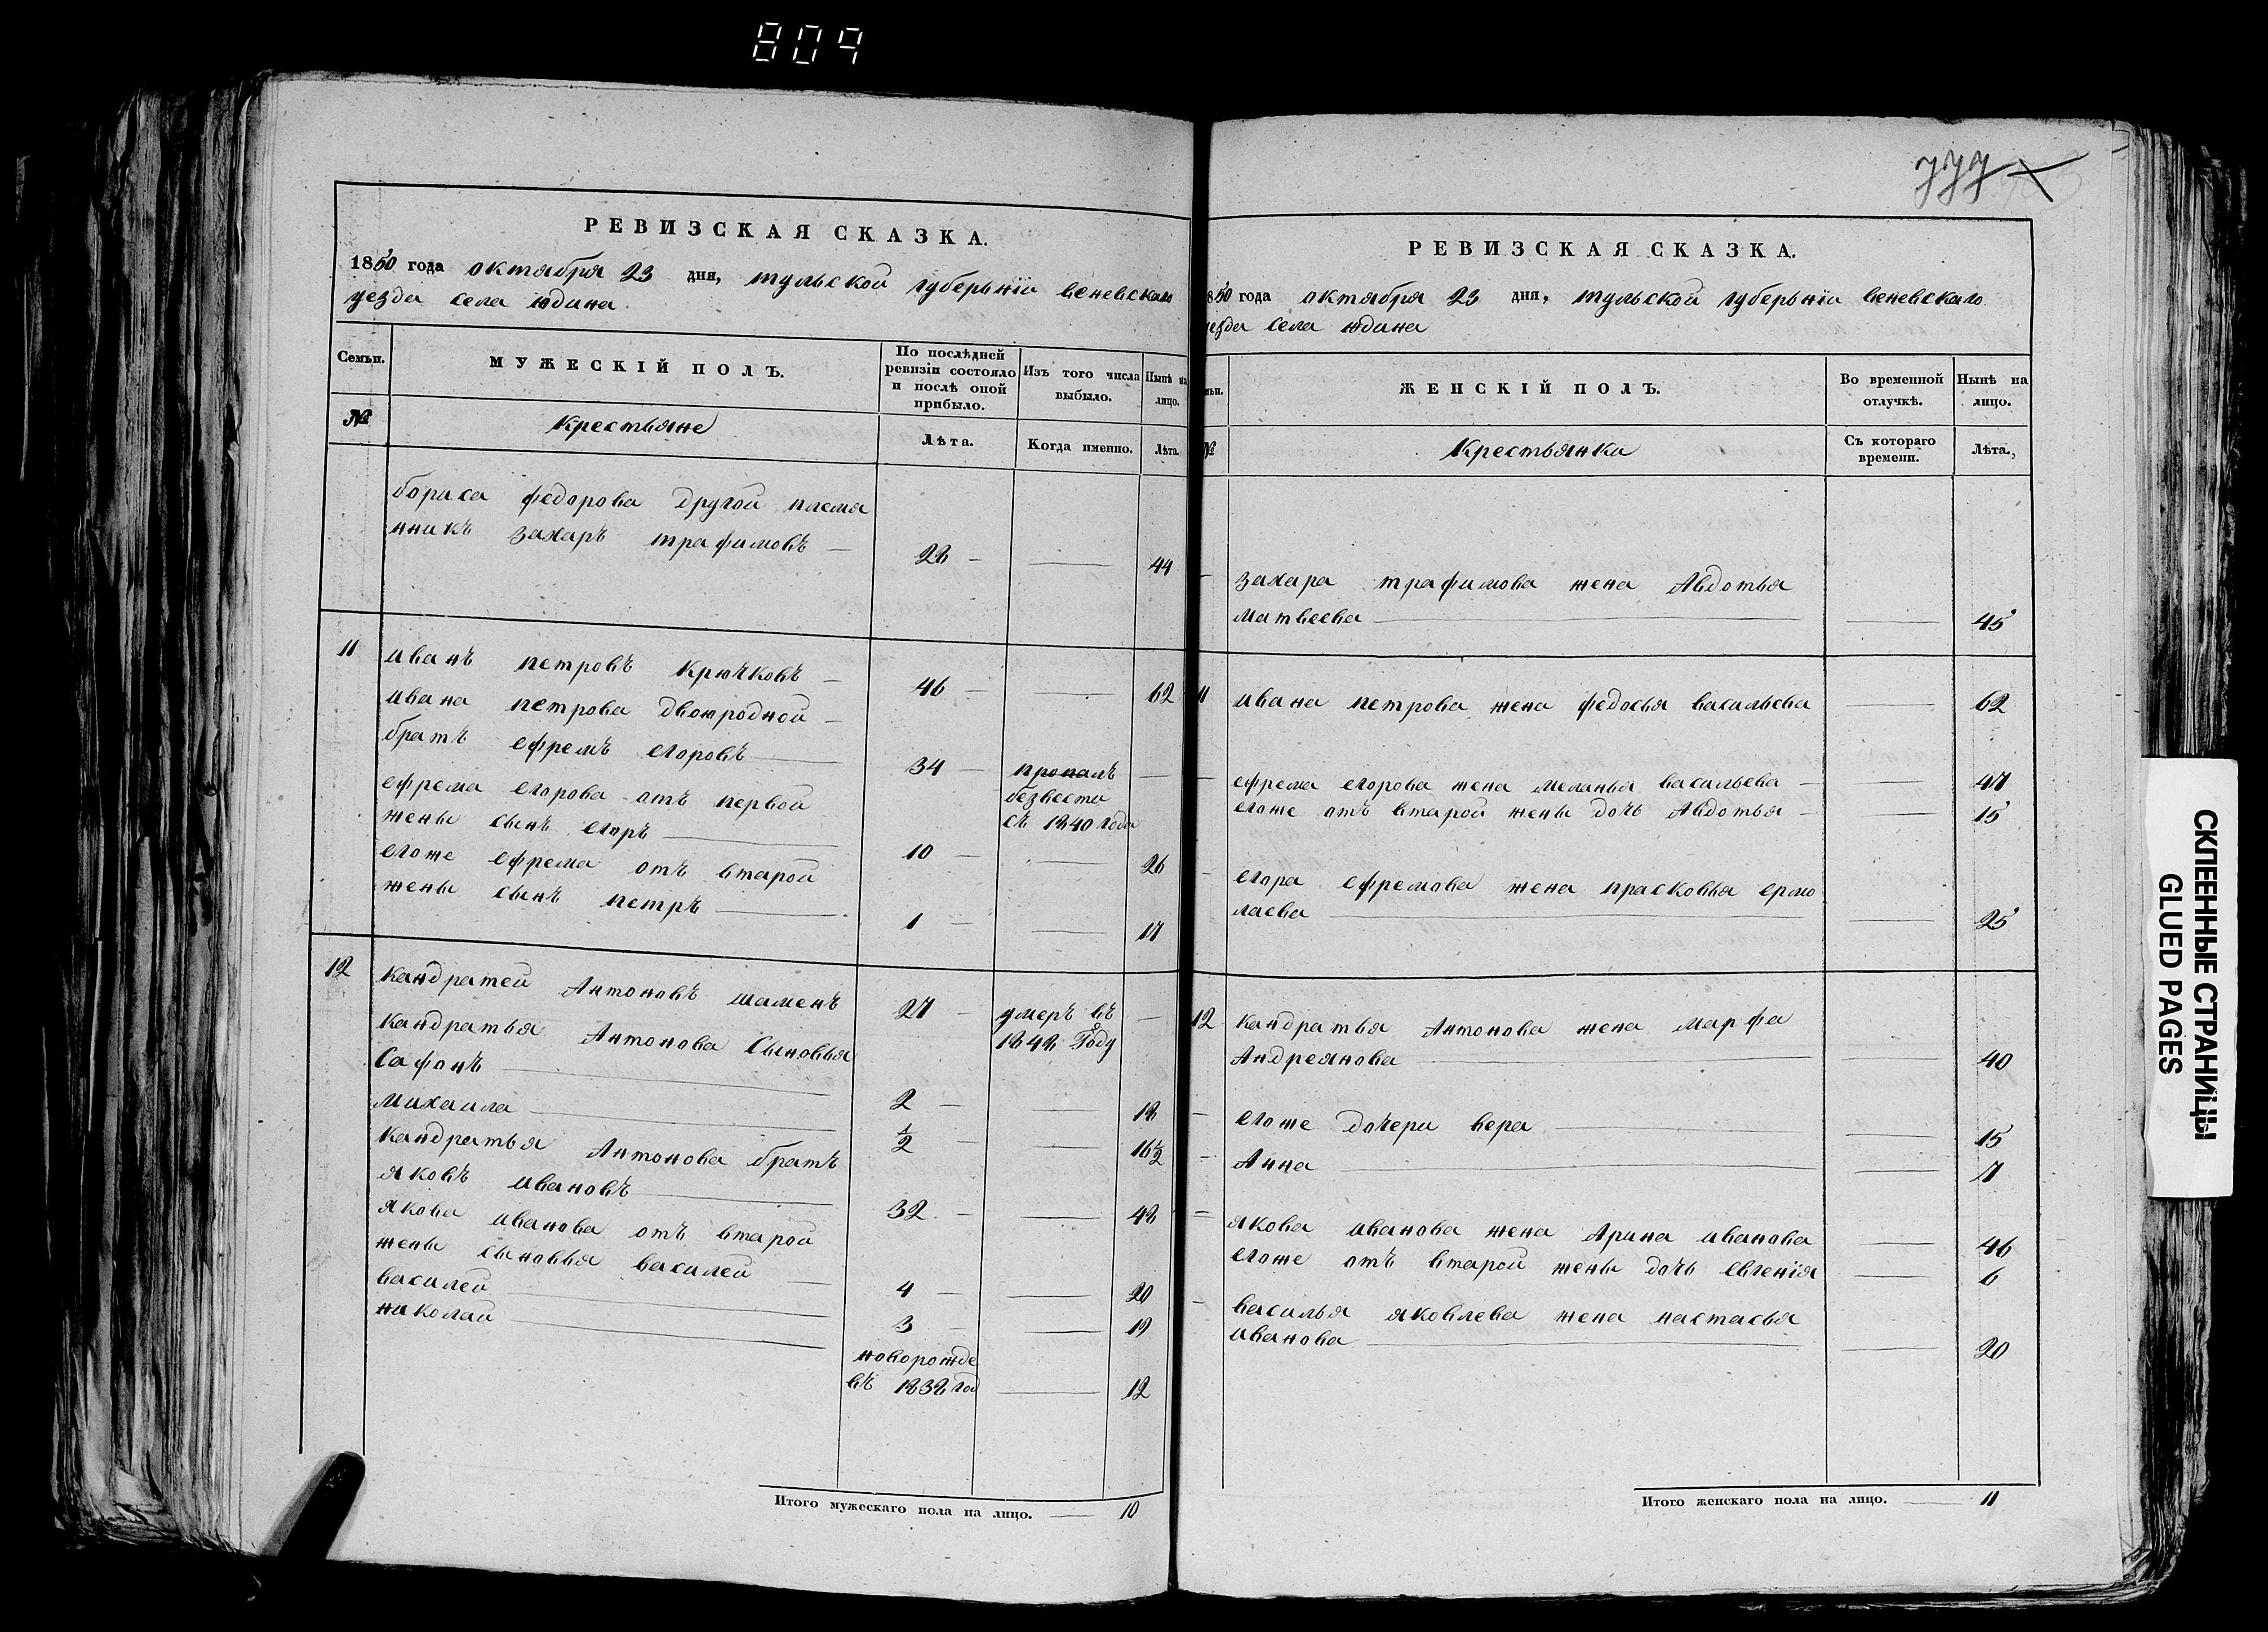 809
777
РЕВИЗСКАЯ СКАЗКА.
1850 года октября 23 дня, тульской губерьнїи веневскаго
уезда села юдина
Семьи. МУЖЕСКІЙ ПОЛЪ. По послѣдней ревизіи состояло и послѣ оной прибыло. Изъ того числа выбыло. Нынѣ на лицо.
№ Крестьяне Лѣта. Когда именно. Лѣта.
бориса федорова другой племя
нникъ захаръ трафимовъ — 28 — — 44
11 иванъ петровъ Крючковъ — 46 — — 62
ивана петрова двоюродной —
братъ ефремъ егоровъ — 34 — пропалъ —
безвести
съ 1840 года
ефрема егорова отъ первой
жены сынъ егоръ — 10 — — 26
егоже ефрема отъ второй
жены сынъ петръ — 1 — — 17
12 кандратей Антоновъ шаменъ 27 — умеръ въ —
1848 году
кандратья Антонова Сыновья
Сафонъ — 2 — — 18
михаила — ½ — — 16½
кандратья Антонова братъ
яковъ ивановъ — 32 — — 48
якова иванова отъ второй
жены сыновья василей — 4 — — 20
василей — 3 — — 19
николай — новорожде
въ 1838 год — 12
Итого мужескаго пола на лицо. — 10
РЕВИЗСКАЯ СКАЗКА.
1850 года октября 23 дня, тульской губерьнїи веневскаго
уезда села юдина
ЖЕНСКІЙ ПОЛЪ. Во временной отлучкѣ. Нынѣ на лицо.
№ Крестьянки Съ котораго времени. Лѣта.
— захара трафимова жена Авдотья
матвеева — — 45
11 ивана петрова жена федосья васильева — 62
— ефрема егорова жена меланья васильева — — 47
егоже отъ второй жены дочь Авдотья — — 15
— егора ефремова жена прасковья ермо
лаева — — 25
12 кандратья Антонова жена марфа
Андреянова — — 40
— егоже дочери вера — — 15
— Анна — — 7
— якова иванова жена Арина иванова — 46
егоже отъ второй жены дочь евгенїя — 6
— василья яковлева жена настасья
иванова — — 20
Итого женскаго пола на лицо. — 11
СКЛЕЕННЫЕ СТРАНИЦЫ
GLUED PAGES